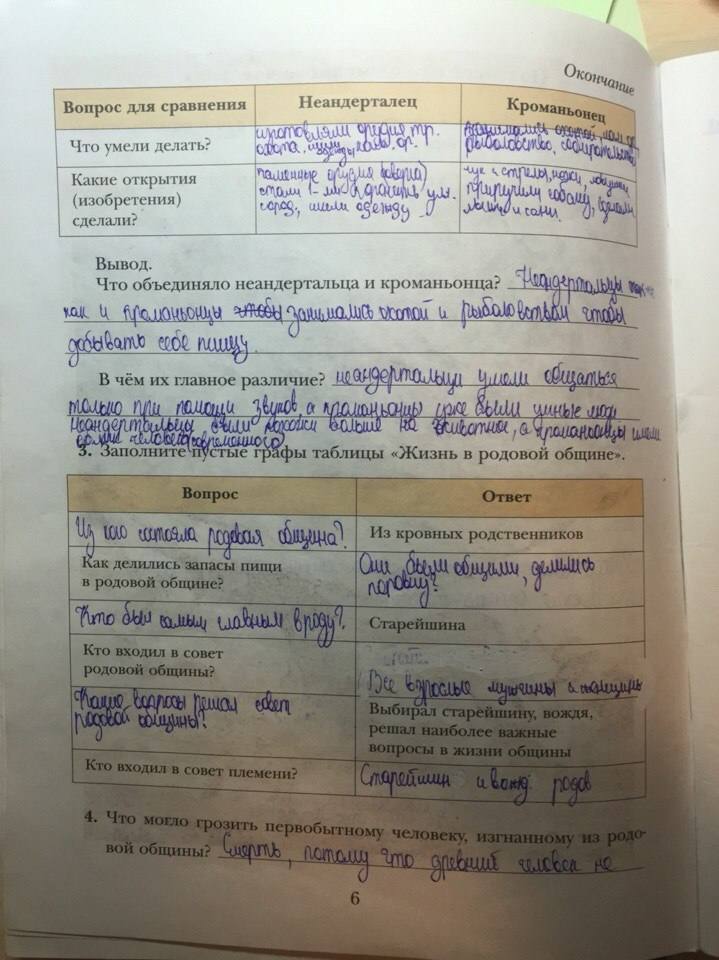 Окончание
Вопрос для сравнения
Неандерталец
Кроманьонец
Что умели делать?
изготовляли орудия тр.
охота,
занимались охотой,
рыболовство, собирательство
Какие открытия
(изобретения)
сделали?
каменные орудия
стали
город., шили одежду
лук и стрелы,
приручили собаку, сделали
лыжи и сани.
Вывод.
Что объединяло неандертальца и кроманьонца? Неандертальцы так же
как и кроманьонцы чтобы занимались охотой и рыболовством чтобы
добывать себе пищу.
В чём их главное различие? неандертальци умели общаться
только при помощи звуков, а кроманьонцы уже были умные люди
Неандертальцы были похожи больше на животное, а кроманьонцы имели
облик человека (современного)
3. Заполните пустые графы таблицы «Жизнь в родовой общине».
Вопрос
Ответ
Из кого состояла родовая община?
Из кровных родственников
Как делились запасы пищи
в родовой общине?
Они были общими, делились
поровну?
Кто был самым главным в роду?
Старейшина
Кто входил в совет
родовой общины?
Все взрослые мужчины и женщины
Какие вопросы решал совет
родовой общины?
Выбирал старейшину, вождя,
решал наиболее важные
вопросы в жизни общины
Кто входил в совет племени?
Старейшин и вожд. родов
4. Что могло грозить первобытному человеку, изгнанному из родо-
вой общины? Смерть, потому что древний человек не
6